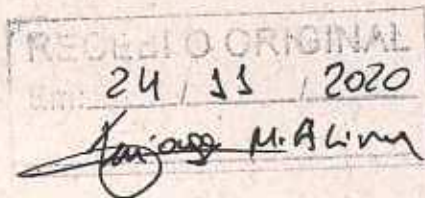 RECEBI O ORIGINAL
Em: 24 / 11 / 2020